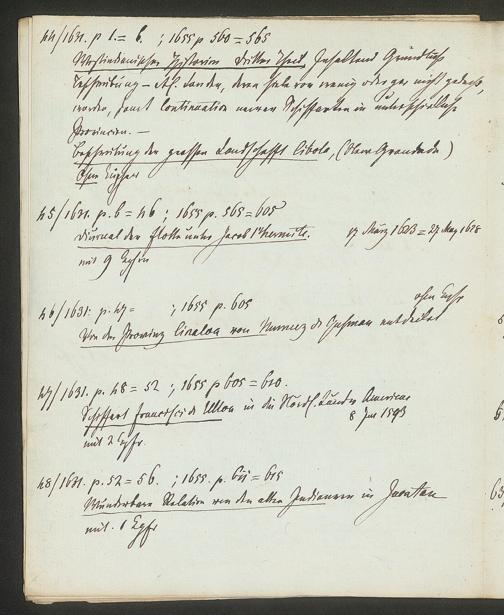 44/1631. p 1.= 6. ; 1655 p 560 = 565
Westindianischer Historien Dritter Theil, Inhaltend Gründliche
Beschreibung – etl. Länder, deren theils von wenig oder gar nicht gedacht,
worden, samt Continuation neuer Schiffarten in unterschiedliche
Provincien. –
Beschreibung der grossen Landschafft Cibola, (Neu Granada)
Ohne Kupfer
45/1631. p. 6 = 46 ; 1655 p. 565 = 605
Diurnal der Flotte unter Jacob l'hermite. 17 März 1623 = 27 May 1628
mit 9 Kpfrn
ohne Kpfr
46/1631: p. 47 = ; 1655 p. 605
Von der Provinz Cinaloa von Nunnez de Gusman entdecket
47/1631. p. 48 = 52 ; 1655 p 605 = 610.
Schiffart Francisci de Ulloa in die Nördl. Länder Americae
8 Jul 1593
mit 2 Kpfr.
48/1631. p. 52 = 56. ; 1655. p. 611 = 615
Wunderbare Relation von den alten Indianern in Jucatan
mit. 1 Kpfr